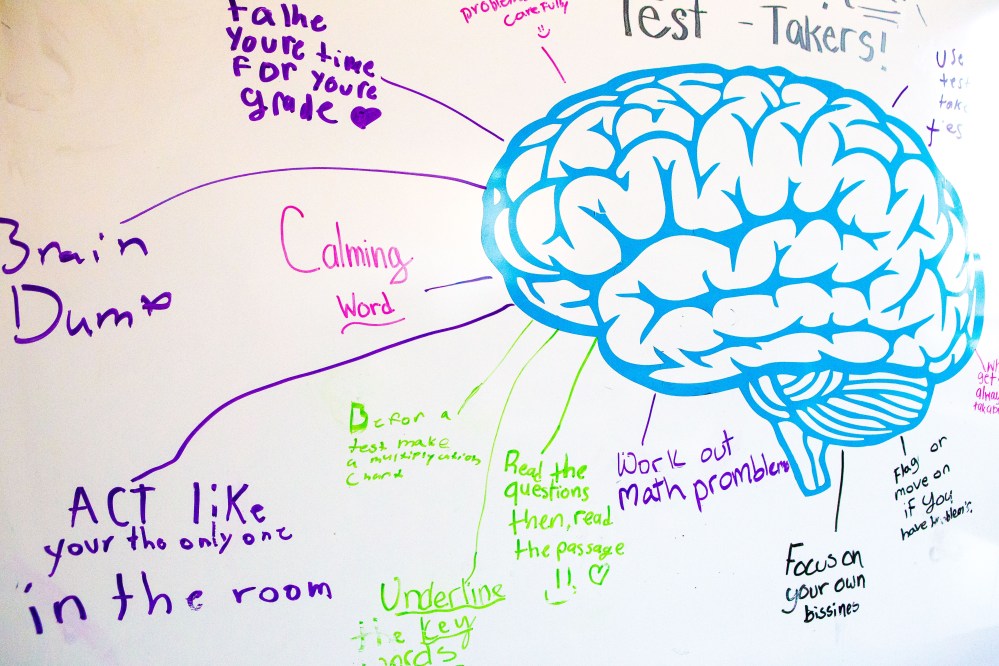 talke
youre time
For youre
grade ♥
problems
carefully
Test - Takers!
use
test
take
ties
Brain
Dump
Calming
Word
ACT like
your the only one
in the room
Befor a
test make
a multiplycation
Chard
Underline
the key
words
Read the
questions
then, read
the passage
!! ♡
Work out
math promblems
Focus on
your own
bissines
Flag or
move on
if you
have
get